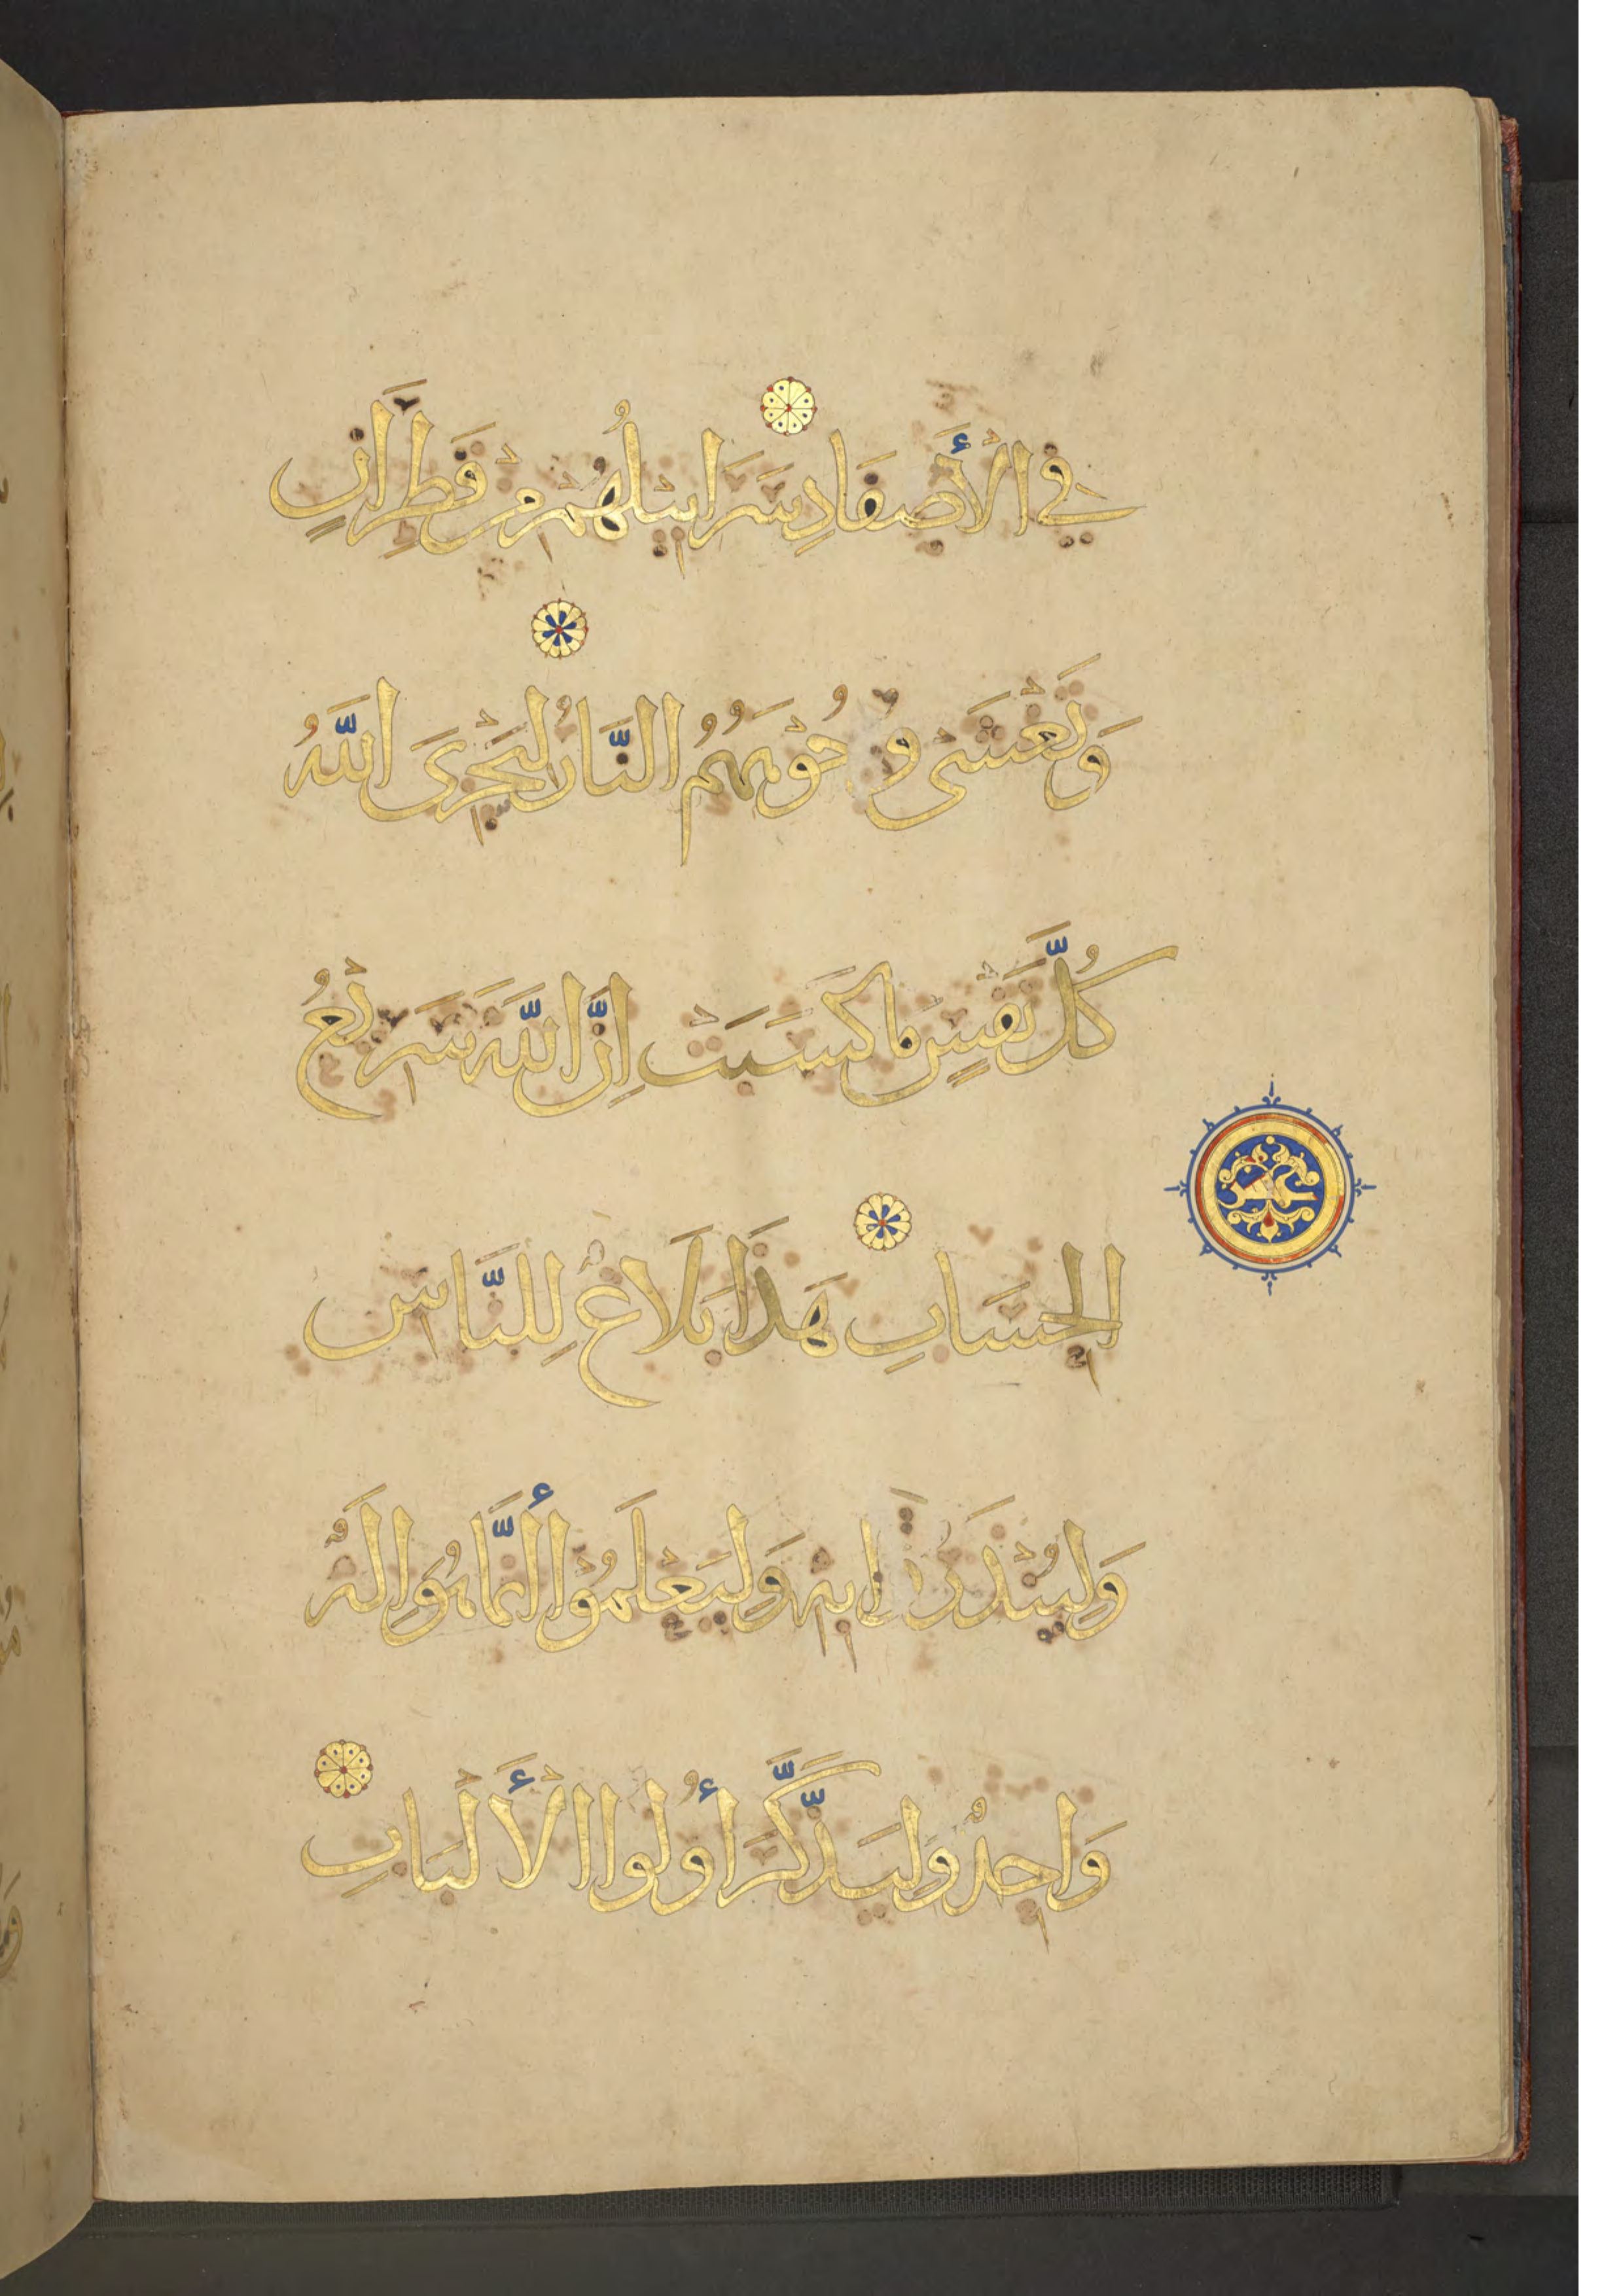 فِي الْأَصْفَادِ سَرَابِيلُهُمْ مِنْ قَطِرَانٍ
وَتَغْشَى وُجُوهَهُمُ النَّارُ لِيَجْزِىَ اللَّهُ
كُلَّ نَفْسٍ مَا كَسَبَتْ إِنَّ اللَّهَ سَرِيعُ
عشر
الْحِسَابِ هَذَا بَلَاغٌ لِلنَّاسِ
وَلِيُنْذَرُوا بِهِ وَلِيَعْلَمُوْا أَنَّمَا هُوَ إِلَهٌ
وَاحِدٌ وَلِيَذَّكَّرَ أُولُوا الْأَلْبَابِ